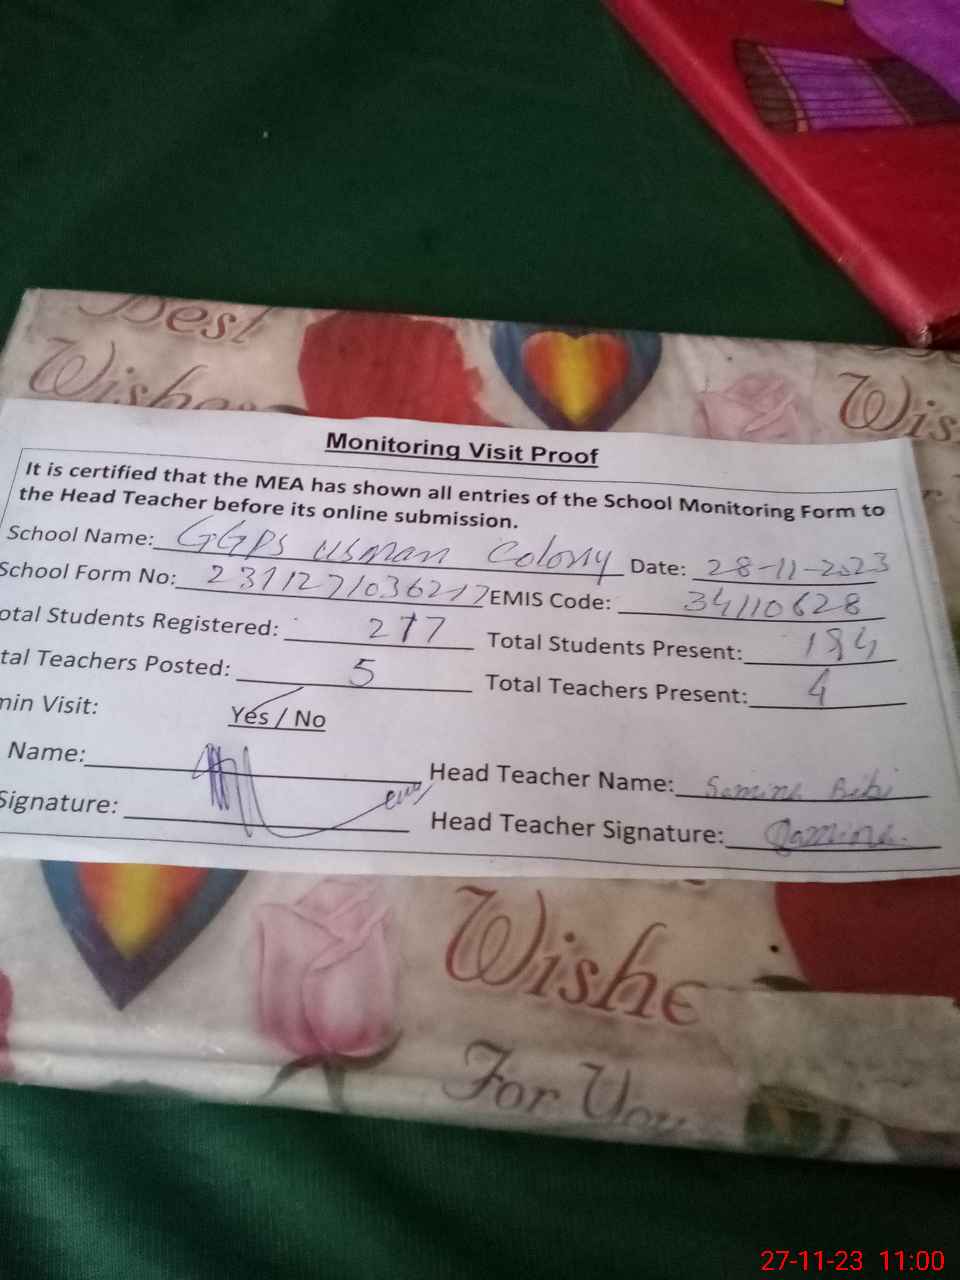 Best
Wishe
Wis
Monitoring Visit Proof
It is certified that the MEA has shown all entries of the School Monitoring Form to
the Head Teacher before its online submission.
School Name: GGPS usman Colony Date: 28-11-2023
School Form No: EMIS Code: 34110628
otal Students Registered: 277 Total Students Present: 184
tal Teachers Posted: 5 Total Teachers Present: 4
min Visit: Yes / No
Name: Head Teacher Name: Samina Bibi
Signature: Head Teacher Signature: Samina
Wishe
For You
27-11-23 11:00